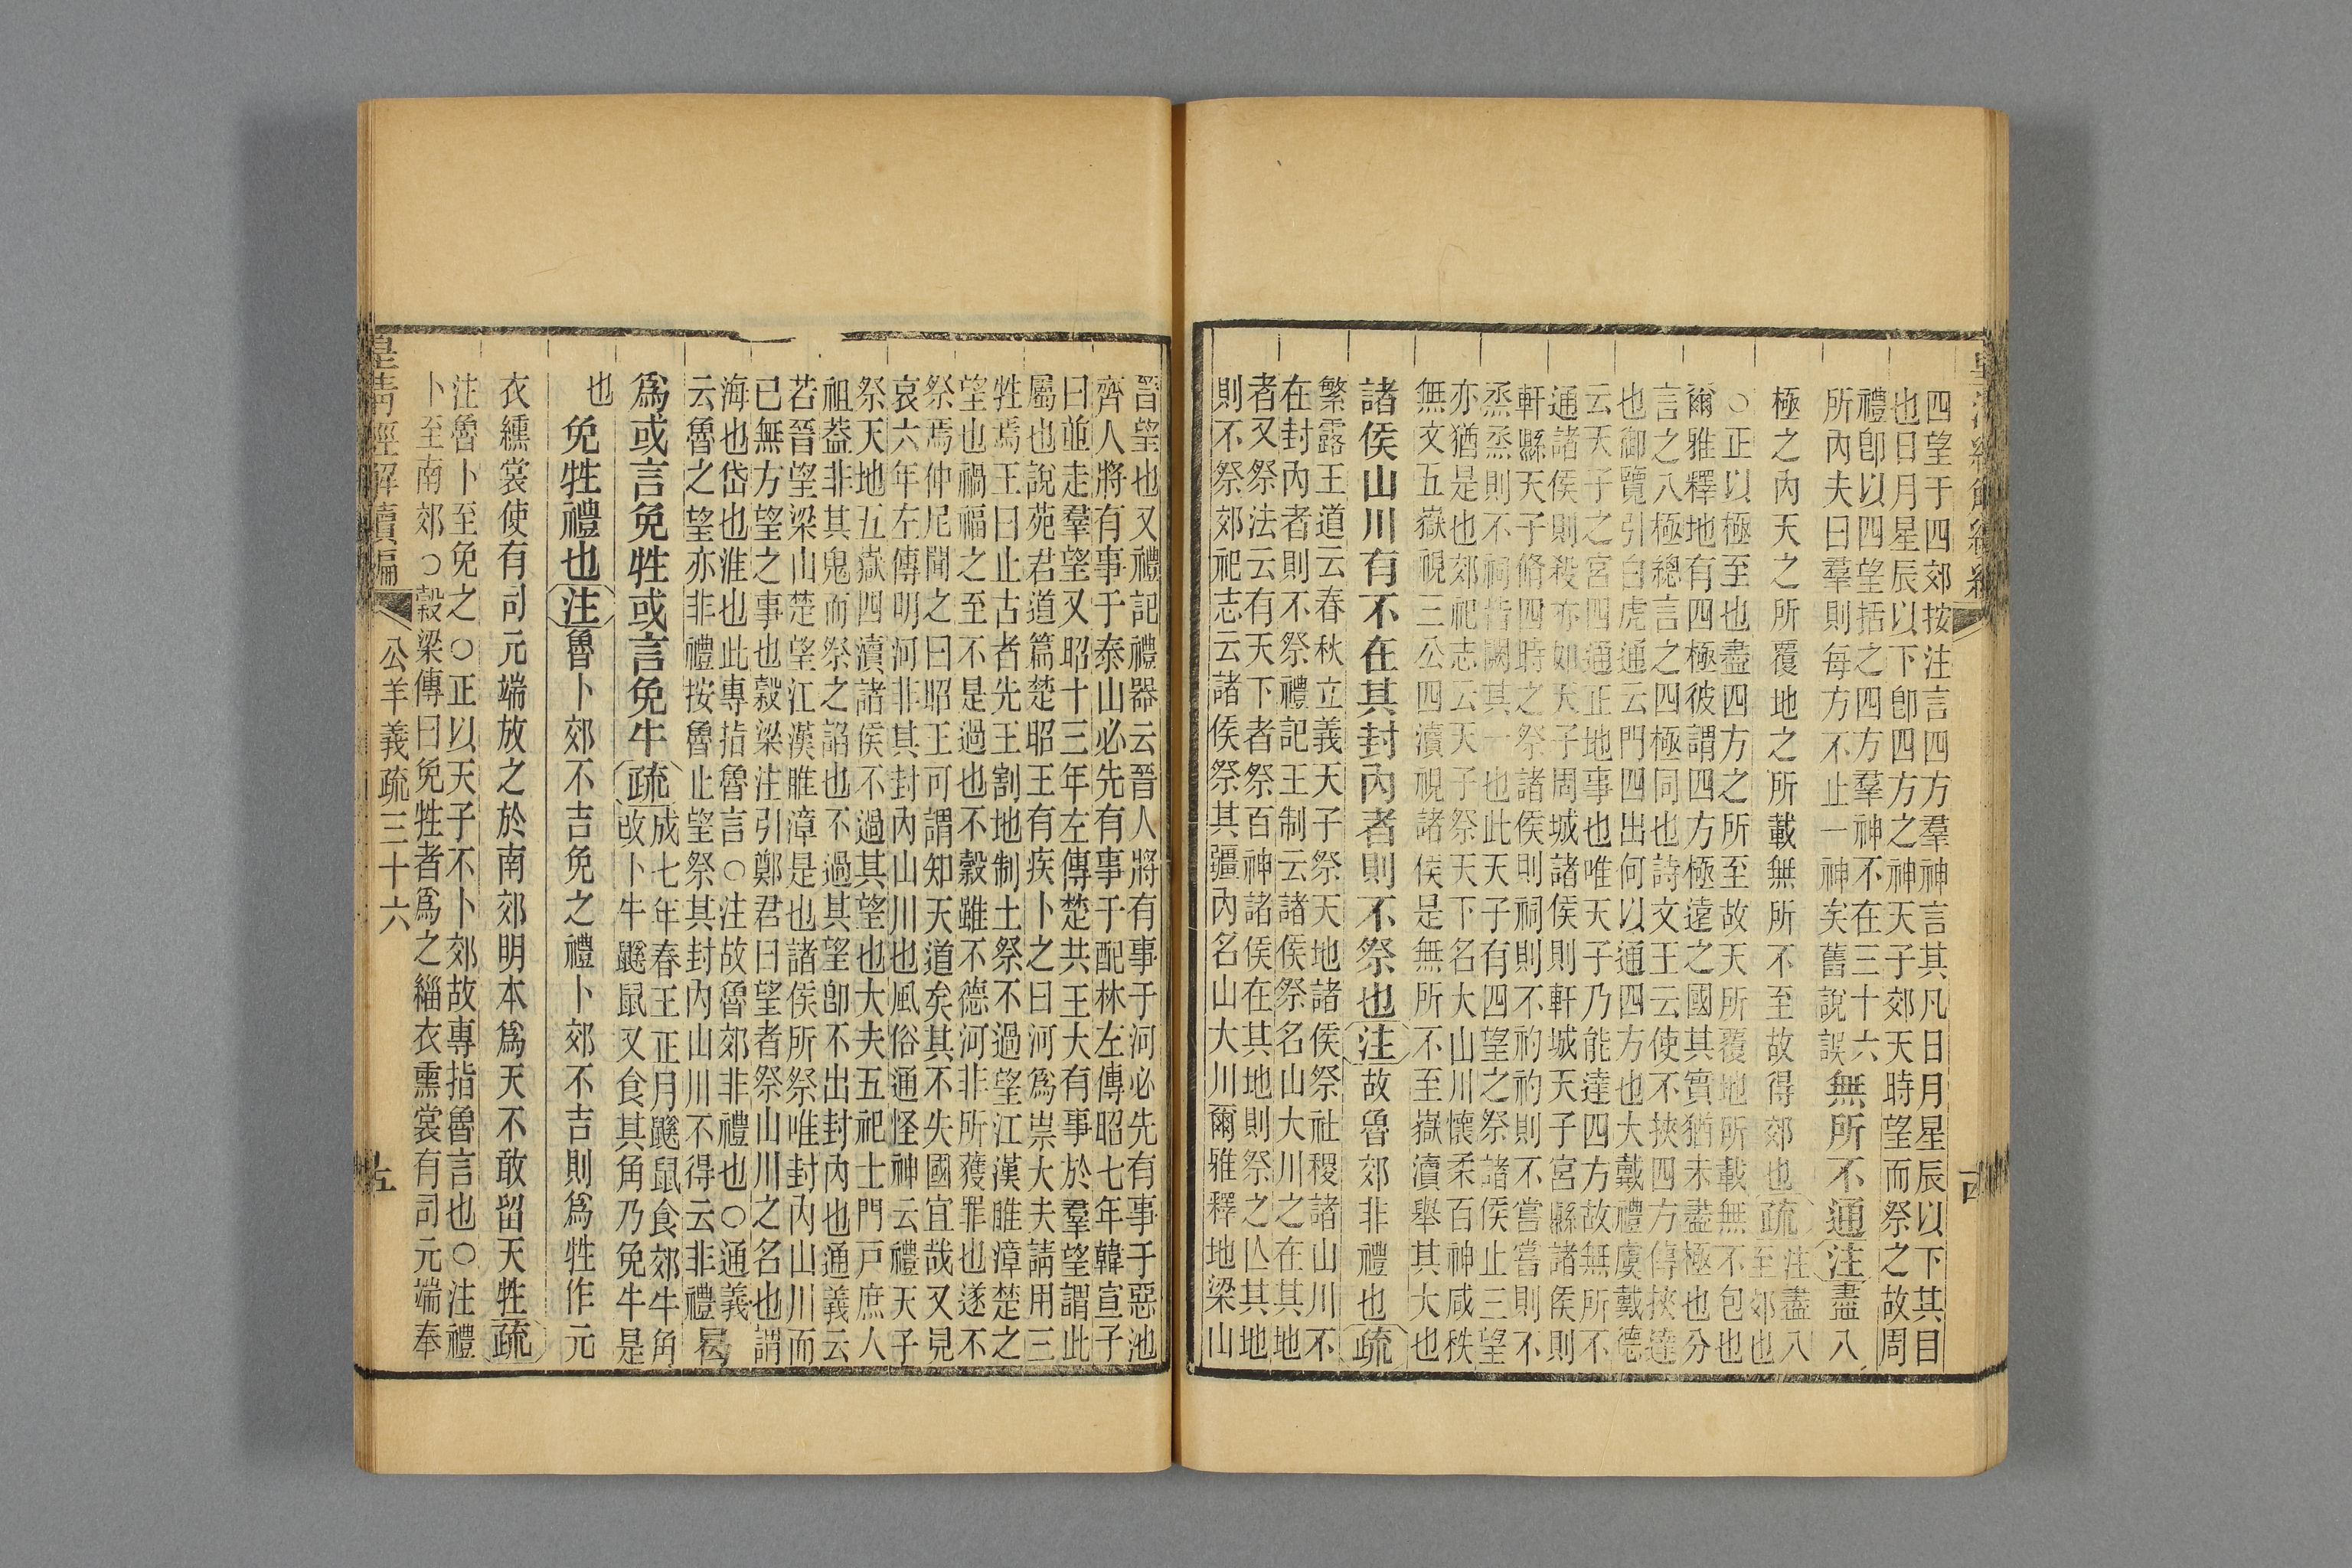 四望于四郊按注言四方羣神言其凡日月星辰以下其目
也日月星辰以下卽四方之神天子郊天時望而祭之故周
禮卽以四望括之四方羣神不在三十六
所內夫曰羣則每方不止一神矣舊說誤
無所不通注盡八
極之內天之所覆地之所載無所不至故得郊也疏
注盡八
至郊也
○正以極至也盡四方之所至故天所覆地所載無不包也
爾雅釋地有四極彼謂四方極遠之國其實猶未盡極也分
言之八極總言之四極同也詩文王云使不挾四方傳挾達
也御覽引白虎通云門四出何以通四方也大戴禮虞戴德
云天子之宮四通正地事也唯天子乃能達四方故無所不
通諸侯則殺亦如天子周城諸侯則軒城天子宮縣諸侯則
軒縣天子脩四時之祭諸侯則祠則不礿礿則不嘗嘗則不
烝烝則不祠皆闕其一也此天子有四望之祭諸侯止三望
亦猶是也郊祀志云天子祭天下名大山川懷柔百神咸秩
無文五嶽視三公四瀆視諸侯是無所不至嶽瀆舉其大也
諸侯山川有不在其封內者則不祭也注故魯郊非禮也疏
繁露王道云春秋立義天子祭天地諸侯祭社稷諸山川不
在封內者則不祭禮記王制云諸侯祭名山大川之在其地
者又祭法云有天下者祭百神諸侯在其地則祭之亾其地
則不祭郊祀志云諸侯祭其疆內名山大川爾雅釋地梁山
晉望也又禮記禮器云晉人將有事于河必先有事于惡池
齊人將有事于泰山必先有事于配林左傳昭七年韓宣子
曰並走羣望又昭十三年左傳楚共王大有事於羣望謂此
屬也說苑君道篇楚昭王有疾卜之曰河爲祟大夫請用三
牲焉王曰止古者先王割地制土祭不過望江漢睢漳楚之
望也禍福之至不是過也不穀雖不德河非所獲罪也遂不
祭焉仲尼聞之曰昭王可謂知天道矣其不失國宜哉又見
哀六年左傳明河非其封內山川也風俗通怪神云禮天子
祭天地五嶽四瀆諸侯不過其望也大夫五祀士門戶庶人
祖葢非其鬼而祭之諂也不過其望卽不出封內也通義云
若晉望梁山楚望江漢睢漳是也諸侯所祭唯封內山川而
已無方望之事也穀梁注引鄭君曰望者祭山川之名也謂
海也岱也淮也此專指魯言○注故魯郊非禮也○通義
云魯之望亦非禮按魯止望祭其封內山川不得云非禮
曷
爲或言免牲或言免牛疏
成七年春王正月鼷鼠食郊牛角
改卜牛鼷鼠又食其角乃免牛是
也
免牲禮也注魯卜郊不吉免之禮卜郊不吉則爲牲作元
衣纁裳使有司元端放之於南郊明本爲天不敢留天牲疏
注魯卜至免之○正以天子不卜郊故專指魯言也○注禮
卜至南郊○穀梁傳曰免牲者爲之緇衣熏裳有司元端奉
皇淸經解續編
公羊義疏三十六